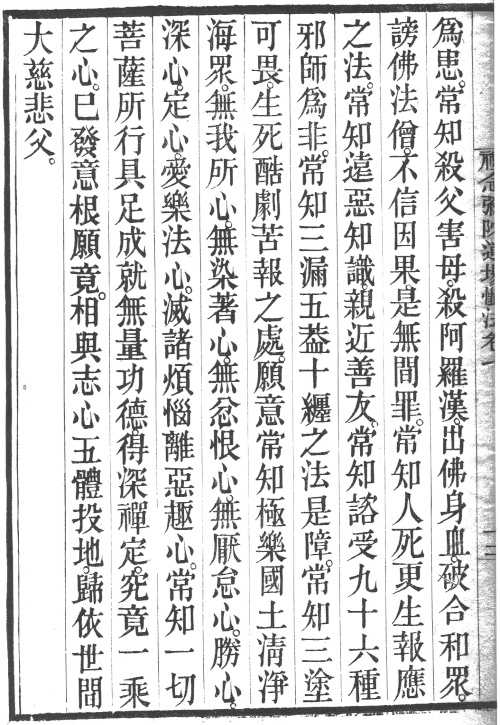 爲患。常知殺父害母。殺阿羅漢。出佛身血。破合和眾。
謗佛法僧。不信因果是無間罪。常知人死更生報應
之法。常知遠惡知識。親近善友。常知諮受九十六種
邪師爲非。常知三漏五葢十纒之法是障。常知三塗
可畏。生死酷劇苦報之處。願意常知極樂國土清淨
海眾。無我所心。無染著心。無忿恨心。無厭怠心。勝心。
深心。定心。愛樂法心。滅諸煩惱離惡趣心。常知一切
菩薩所行具足成就無量功德得深禪定。究竟一乘
之心。已發意根願竟。相與志心五體投地。歸依世間
大慈悲父。